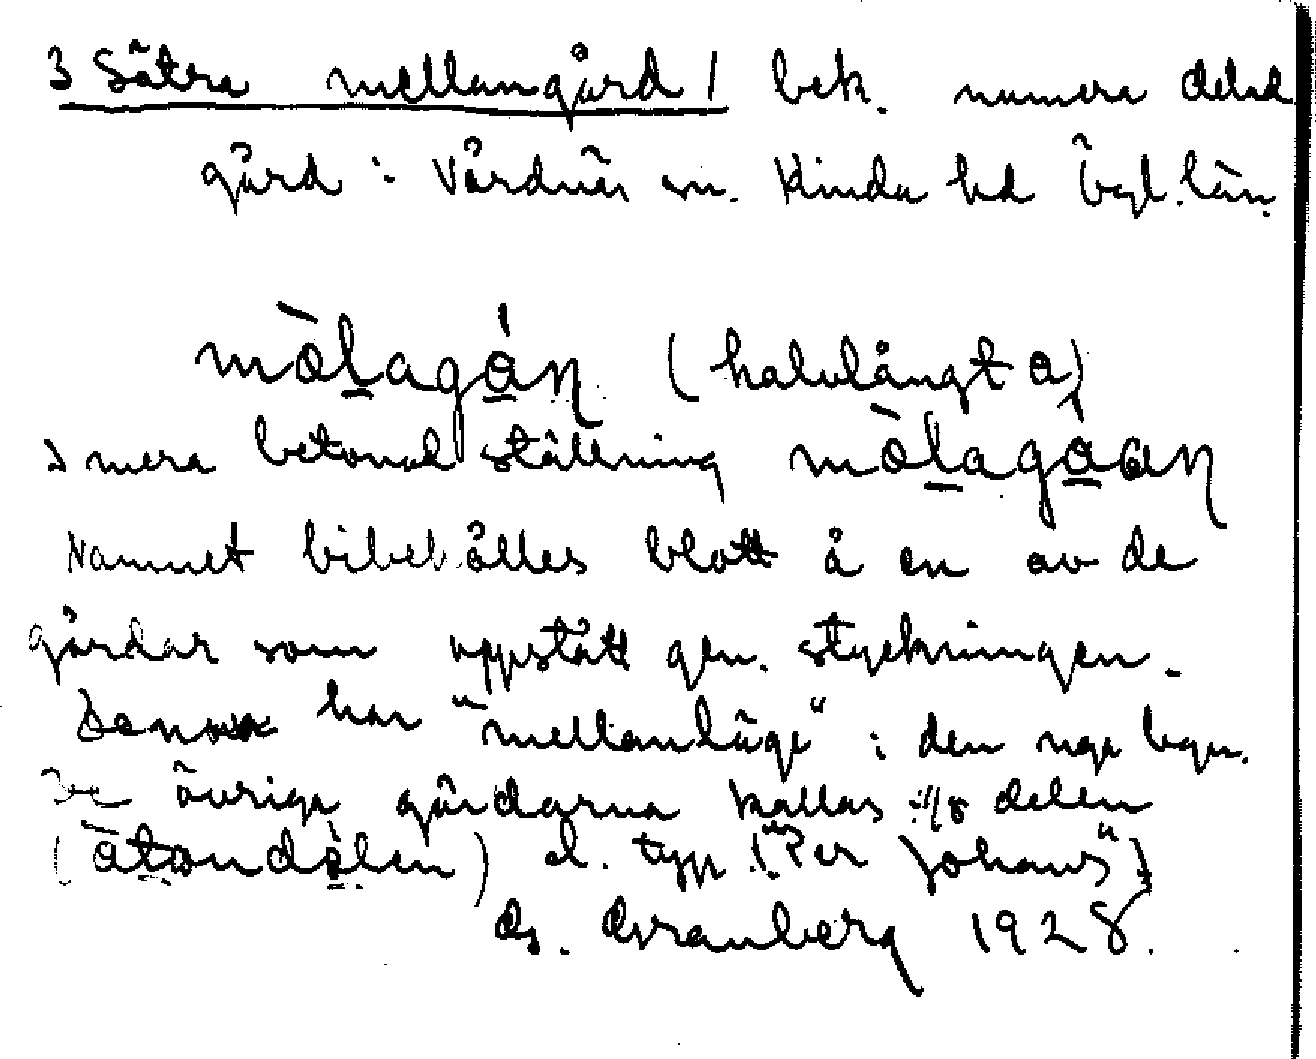 3 Sätra mellangård / bek. numera delad
gård i Vårdnäs sn. Kinda hd Ögl. län.
mòlagán (halvlångt a)
I mera betonad ställning mòlagáan
Namnet bibehålles blott å en av de
gårdar som uppstått gen. styckningen.
Denna har "mellanläge" i den nya bygn.
De övriga gårdarna kallas 1/8 delen
(àtondèlen) el. typ. ("Per Johans")
G. Granberg 1928.